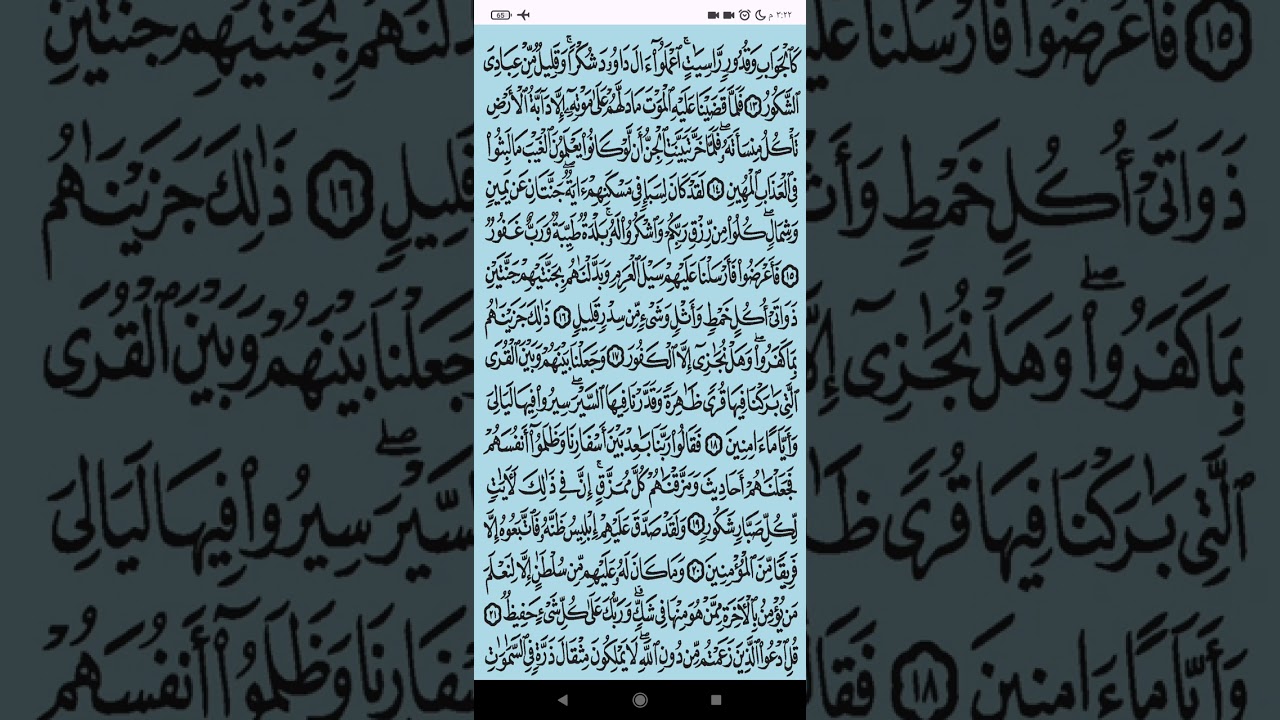 ٣:٢٢ م
65
كَٱلْجَوَابِ وَقُدُورٍ رَّاسِيَٰتٍۚ ٱعْمَلُوٓا۟ ءَالَ دَاوُۥدَ شُكْرًاۚ وَقَلِيلٌ مِّنْ عِبَادِىَ
ٱلشَّكُورُ ١٣ فَلَمَّا قَضَيْنَا عَلَيْهِ ٱلْمَوْتَ مَا دَلَّهُمْ عَلَىٰ مَوْتِهِۦٓ إِلَّا دَآبَّةُ ٱلْأَرْضِ
تَأْكُلُ مِنسَأَتَهُۥۖ فَلَمَّا خَرَّ تَبَيَّنَتِ ٱلْجِنُّ أَن لَّوْ كَانُوا۟ يَعْلَمُونَ ٱلْغَيْبَ مَا لَبِثُوا۟
فِى ٱلْعَذَابِ ٱلْمُهِينِ ١٤ لَقَدْ كَانَ لِسَبَإٍ فِى مَسْكَنِهِمْ ءَايَةٌۖ جَنَّتَانِ عَن يَمِينٍ
وَشِمَالٍۖ كُلُوا۟ مِن رِّزْقِ رَبِّكُمْ وَٱشْكُرُوا۟ لَهُۥۚ بَلْدَةٌ طَيِّبَةٌ وَرَبٌّ غَفُورٌ
١٥ فَأَعْرَضُوا۟ فَأَرْسَلْنَا عَلَيْهِمْ سَيْلَ ٱلْعَرِمِ وَبَدَّلْنَٰهُم بِجَنَّتَيْهِمْ جَنَّتَيْنِ
ذَوَاتَىْ أُكُلٍ خَمْطٍ وَأَثْلٍ وَشَىْءٍ مِّن سِدْرٍ قَلِيلٍ ١٦ ذَٰلِكَ جَزَيْنَٰهُم
بِمَا كَفَرُوا۟ۖ وَهَلْ نُجَٰزِىٓ إِلَّا ٱلْكَفُورَ ١٧ وَجَعَلْنَا بَيْنَهُمْ وَبَيْنَ ٱلْقُرَى
ٱلَّتِى بَٰرَكْنَا فِيهَا قُرًى ظَٰهِرَةً وَقَدَّرْنَا فِيهَا ٱلسَّيْرَۖ سِيرُوا۟ فِيهَا لَيَالِىَ
وَأَيَّامًا ءَامِنِينَ ١٨ فَقَالُوا۟ رَبَّنَا بَٰعِدْ بَيْنَ أَسْفَارِنَا وَظَلَمُوٓا۟ أَنفُسَهُمْ
فَجَعَلْنَٰهُمْ أَحَادِيثَ وَمَزَّقْنَٰهُمْ كُلَّ مُمَزَّقٍۚ إِنَّ فِى ذَٰلِكَ لَءَايَٰتٍ
لِّكُلِّ صَبَّارٍ شَكُورٍ ١٩ وَلَقَدْ صَدَّقَ عَلَيْهِمْ إِبْلِيسُ ظَنَّهُۥ فَٱتَّبَعُوهُ إِلَّا
فَرِيقًا مِّنَ ٱلْمُؤْمِنِينَ ٢٠ وَمَا كَانَ لَهُۥ عَلَيْهِم مِّن سُلْطَٰنٍ إِلَّا لِنَعْلَمَ
مَن يُؤْمِنُ بِٱلْءَاخِرَةِ مِمَّنْ هُوَ مِنْهَا فِى شَكٍّۗ وَرَبُّكَ عَلَىٰ كُلِّ شَىْءٍ حَفِيظٌ ٢١
قُلِ ٱدْعُوا۟ ٱلَّذِينَ زَعَمْتُم مِّن دُونِ ٱللَّهِۖ لَا يَمْلِكُونَ مِثْقَالَ ذَرَّةٍ فِى ٱلسَّمَٰوَٰتِ